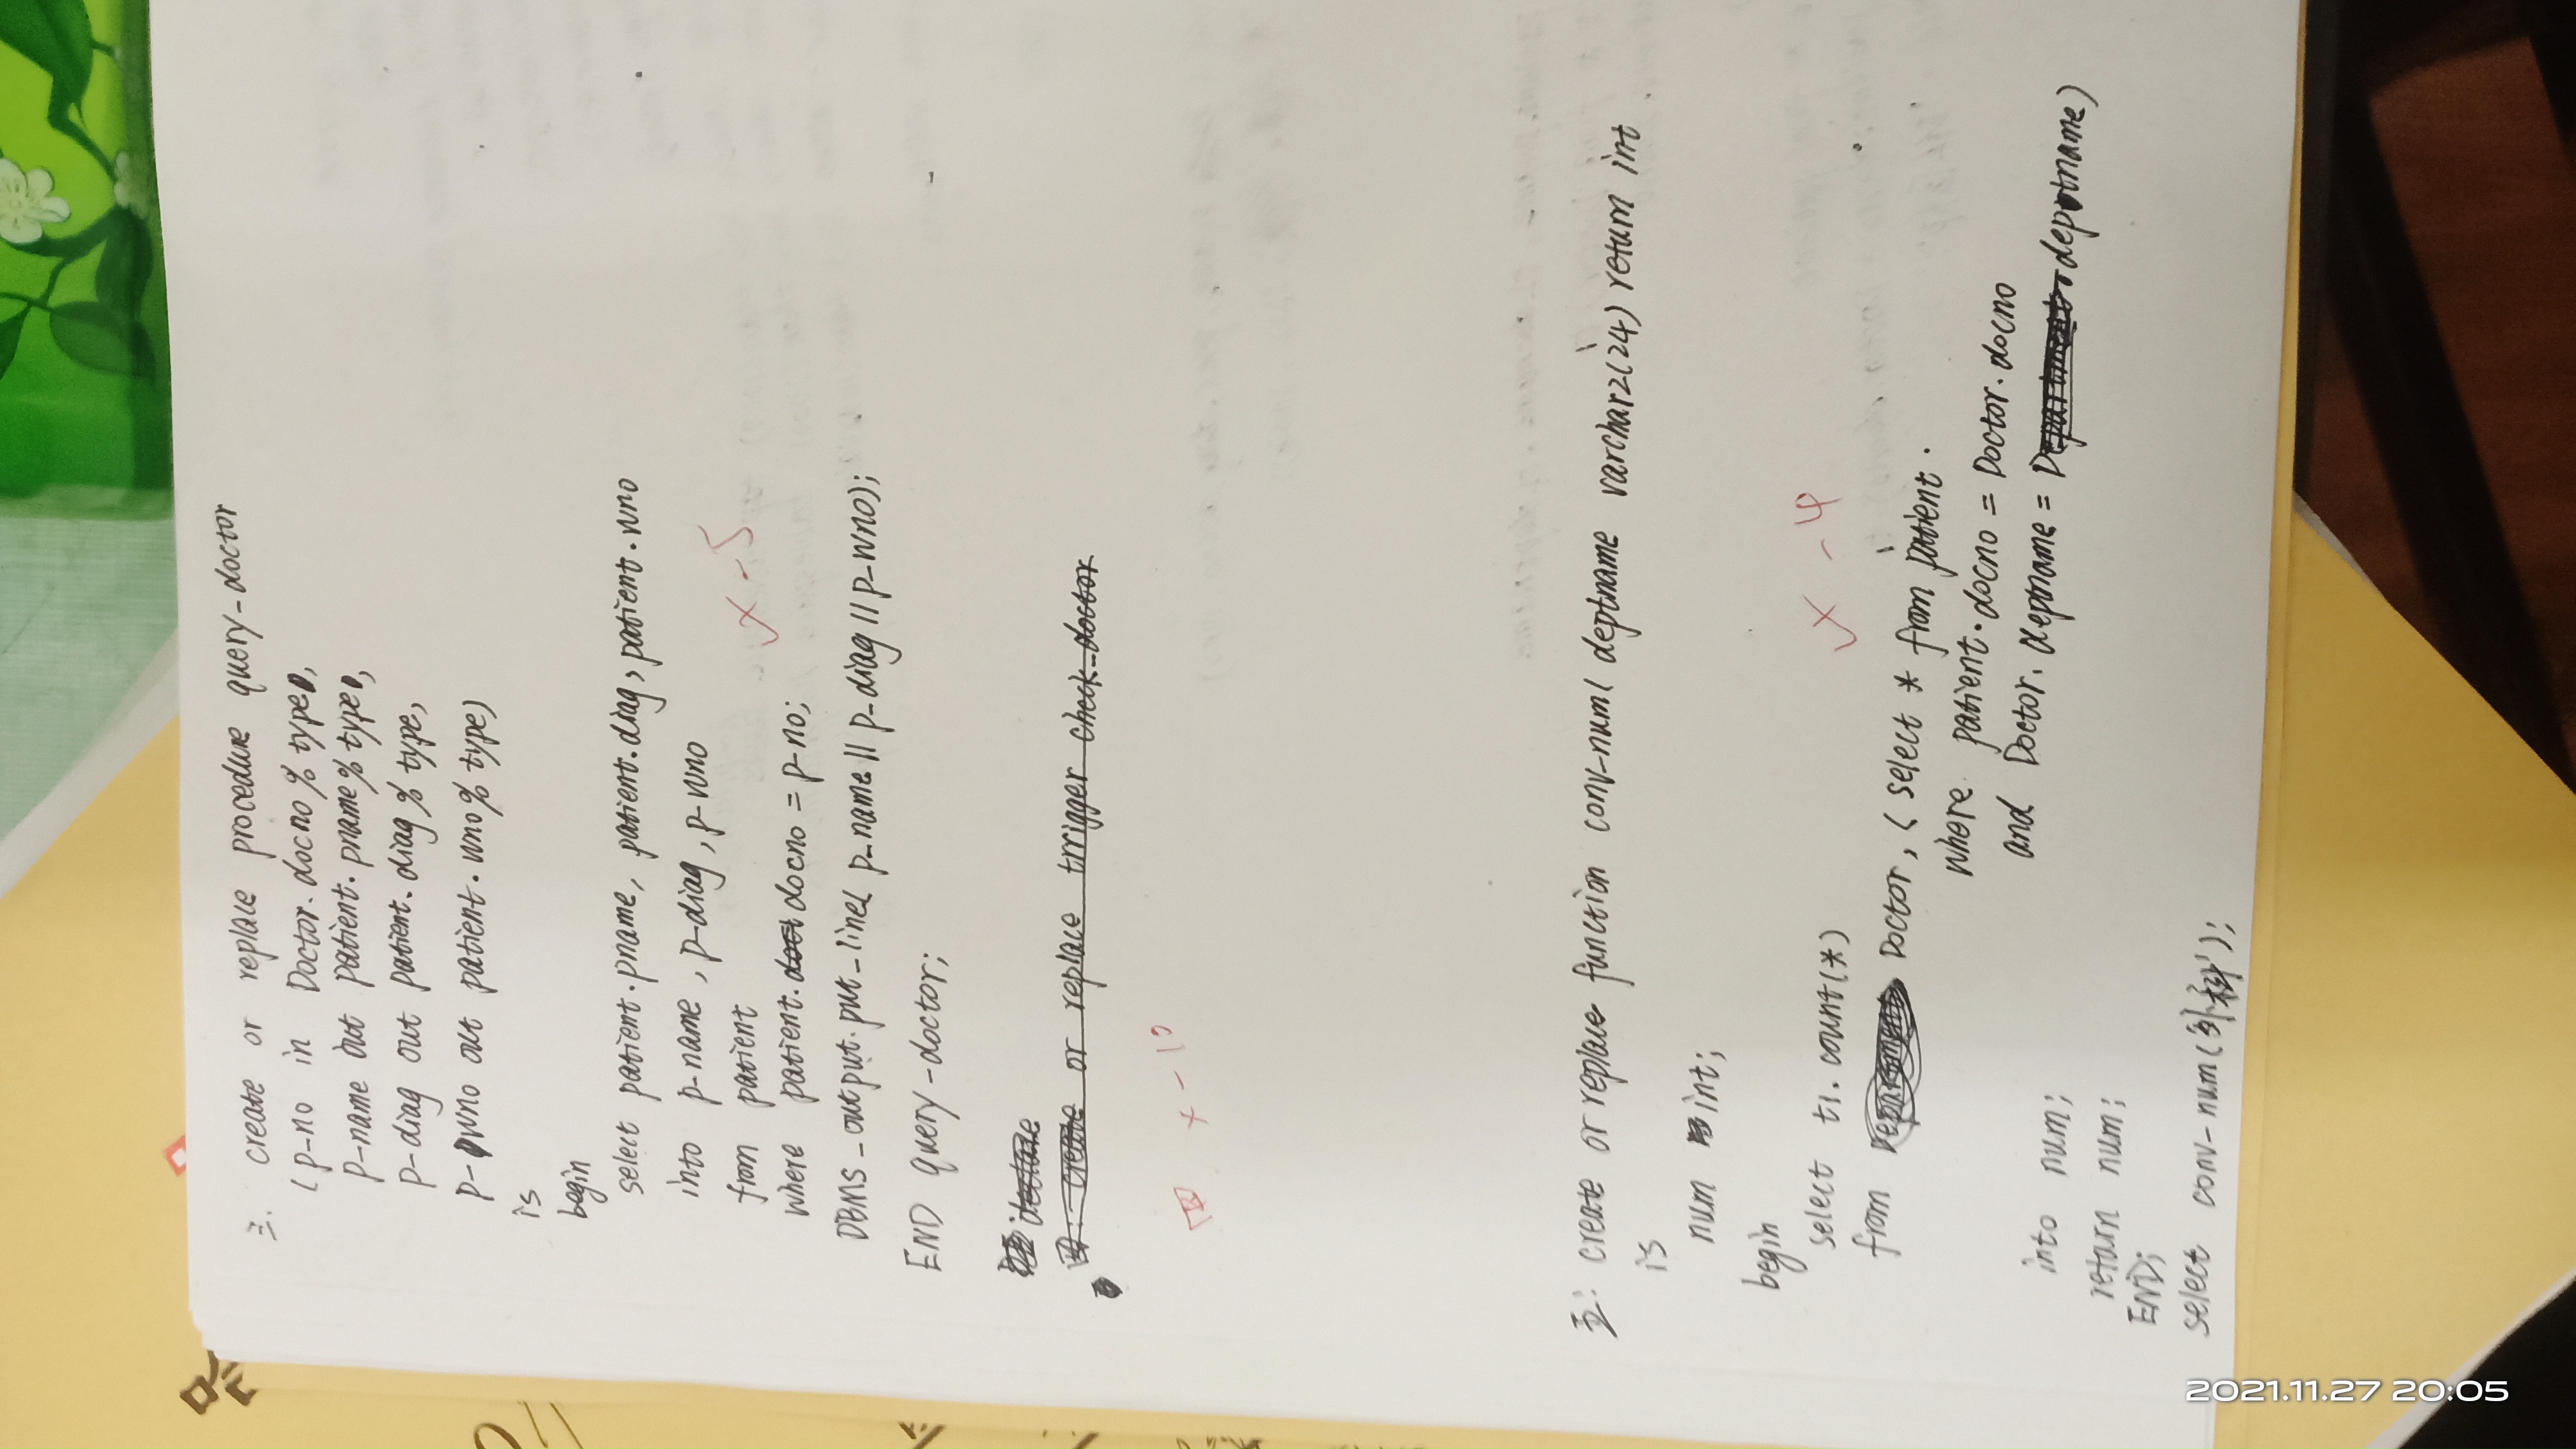 三. create or replace procedure query-doctor
( p-no in Doctor.docno%type,
p-name out patient.pname%type,
p-diag out patient.diag%type,
p-wno out patient.wno%type)
is
begin
select patient.pname, patient.diag, patient.wno
into p-name, p-diag, p-wno
from patient
where patient.docno = p-no;
x-5
DBMS_output.put_line( p_name || p_diag || p_wno);
END query-doctor;
declare
四: create or replace trrigger check_doctor
四 x-10
五: create or replace function conv-num( deptname varchar2(24) return int
is
num int;
begin
select t1.count(*)
x-4
from Department Doctor, ( select * from patient.
where patient.docno = Doctor.docno
and Doctor.deptname = Department.deptname)
into num;
return num;
END;
select conv-num('外科');
2021.11.27 20:05